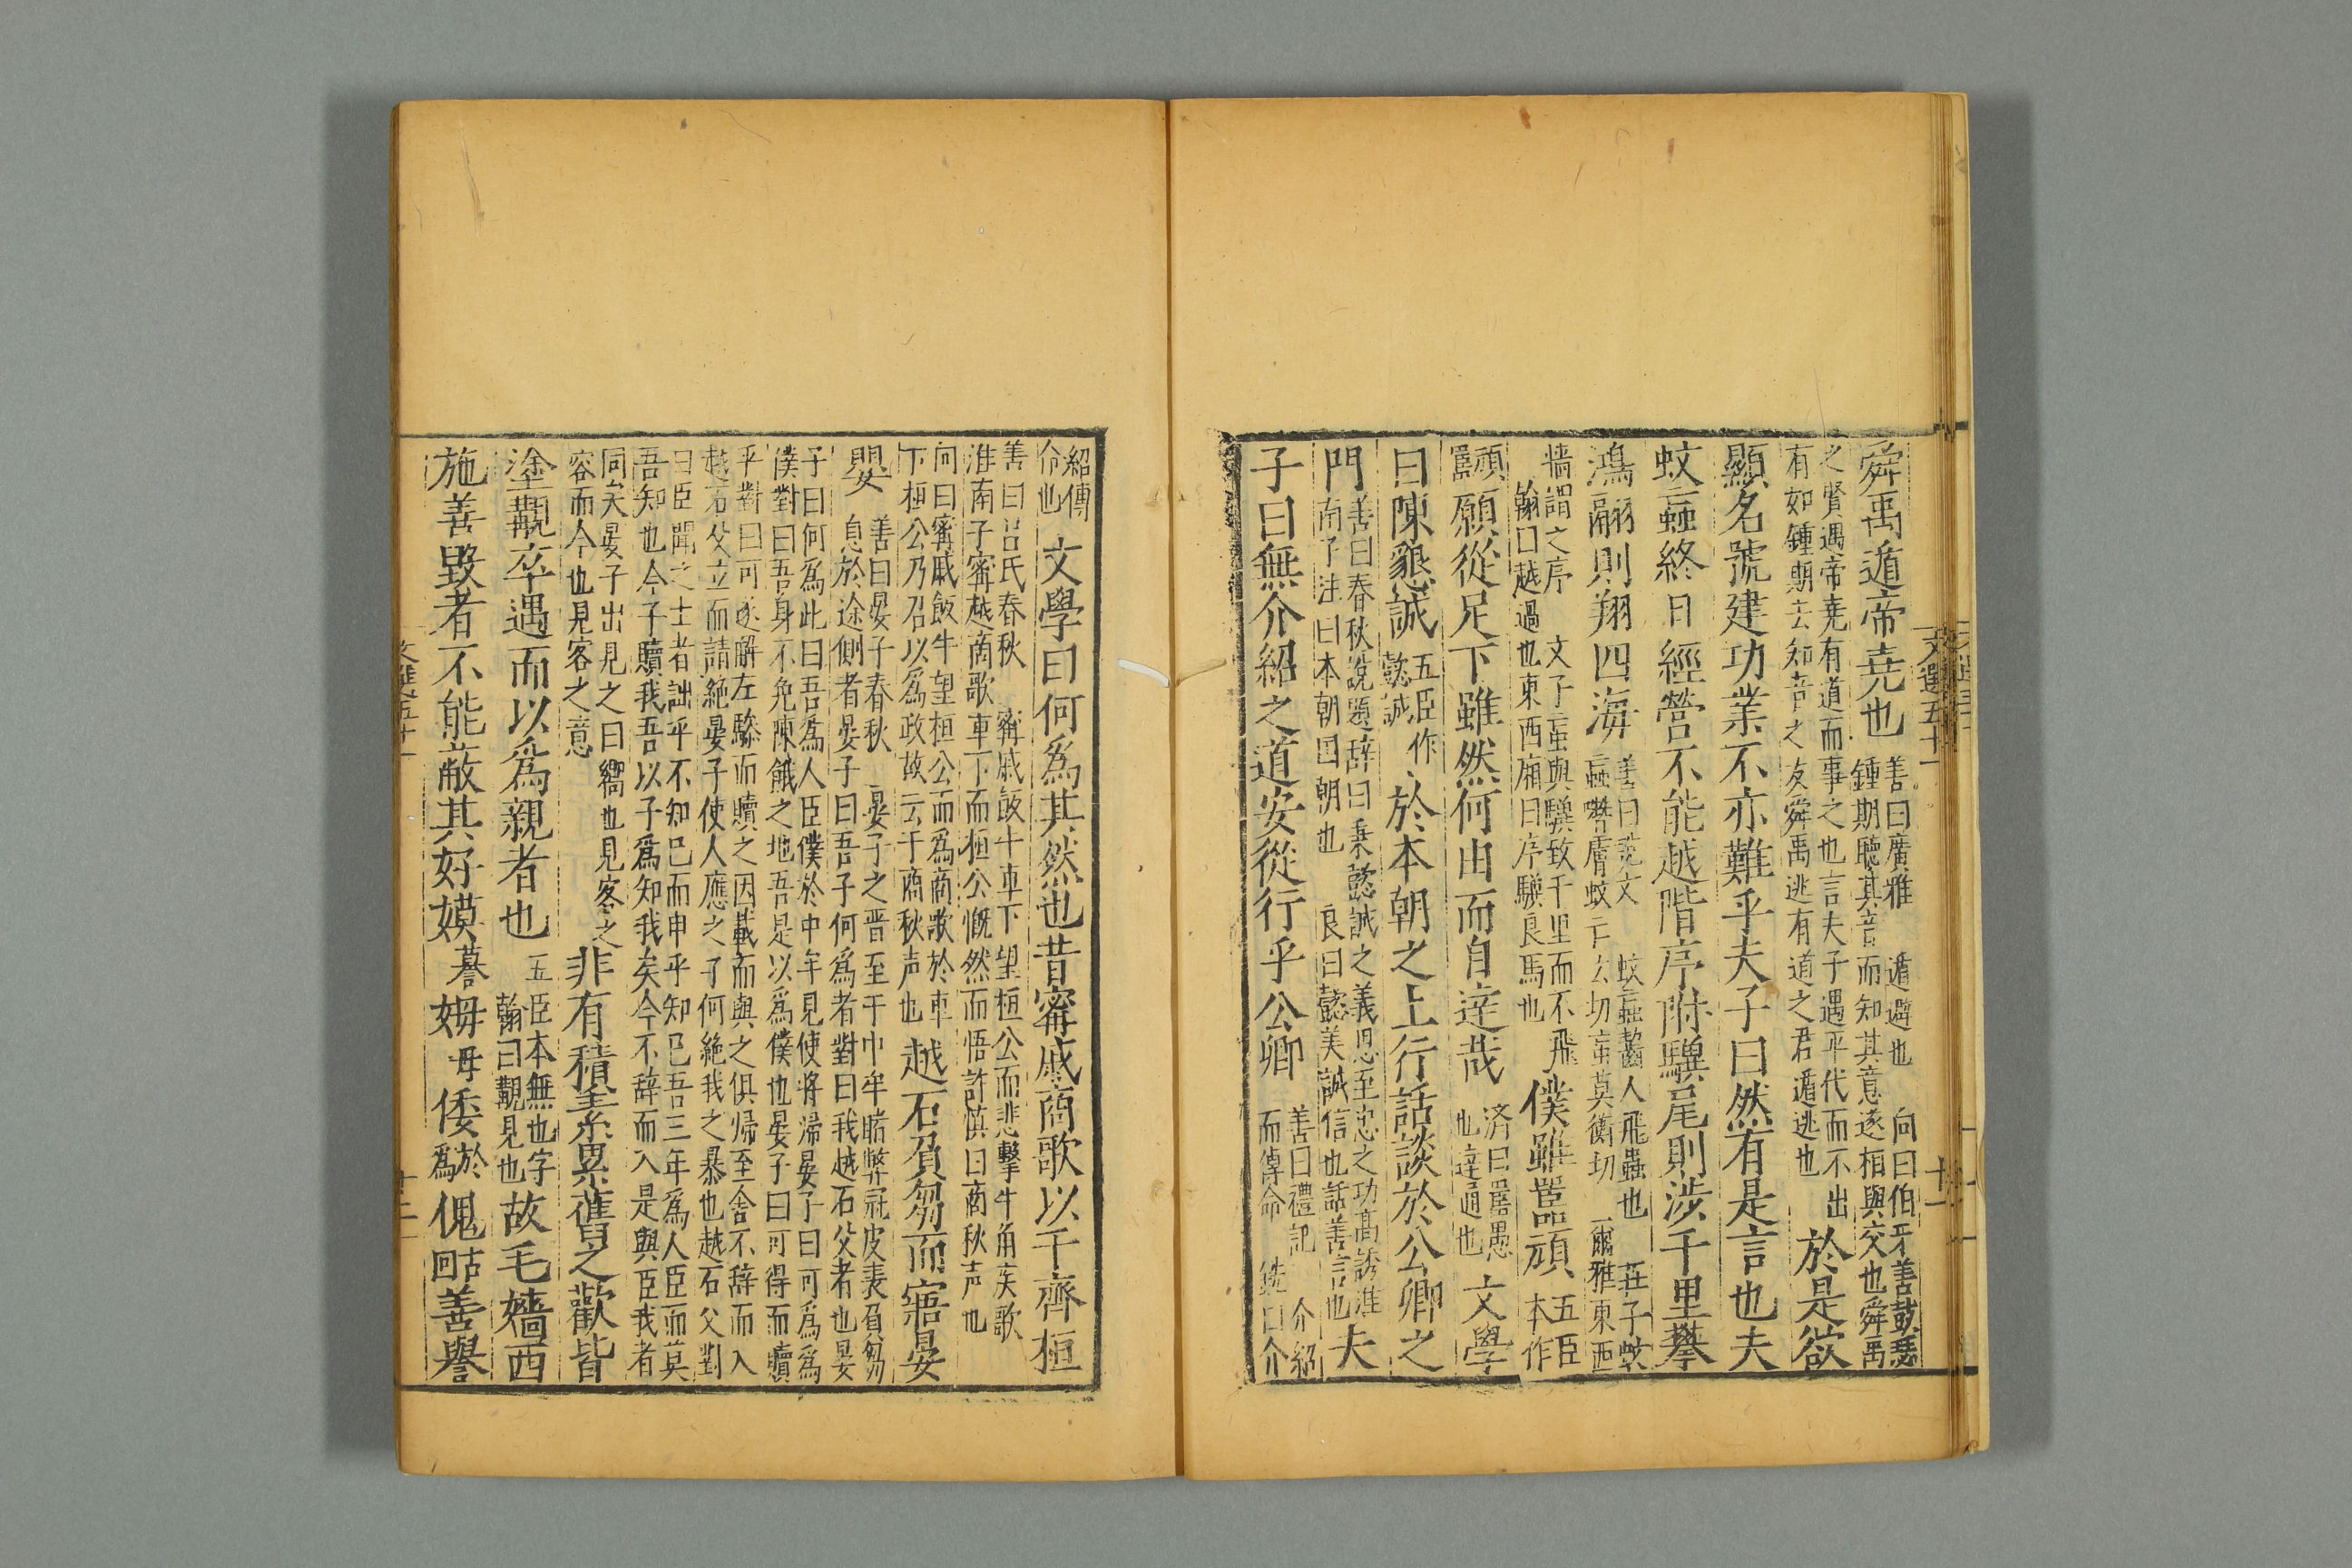 舜禹遁帝堯也善曰廣雅 遁避也 向曰伯牙善鼓琴
鍾期聽其音而知其意遂相與交也舜禹
之賢遇帝堯有道而事之也言夫子遇平代而不出
有如鍾期去知音之友舜禹逃有道之君遁逃也於是欲
顯名號建功業不亦難乎夫子曰然有是言也夫
蚊䖟終日經營不能越階序附驥尾則涉千里攀
鴻翮則翔四海善曰說文 蚊䖟齧人飛蟲也 莊子蚊
䖟噆膚蚊亡云切䖟莫衡切 爾雅東西
牆謂之序 文子䖟與驥致千里而不飛
翰曰越過也東西廂曰序驥良馬也僕雖嚚頑五臣
本作
頑
嚚願從足下雖然何由而自達哉濟曰嚚愚
也達通也文學
曰陳懇誠五臣作
懿誠於本朝之上行話談於公卿之
門善曰春秋說題辭曰秉懿誠之義思至忠之功高誘淮
南子注曰本朝國朝也 良曰懿美誠信也話善言也夫
子曰無介紹之道安從行乎公卿善曰禮記 介紹
而傳命 銑曰介
文選五十一 十一
紹傳
命也文學曰何爲其然也昔甯戚商歌以干齊桓
善曰呂氏春秋 甯戚飯牛車下望桓公而悲擊牛角疾歌
淮南子甯越商歌車下而桓公慨然而悟許慎曰商秋声也
向曰甯戚飯牛望桓公而爲商歌於車
下桓公乃召以爲政故云干商秋声也越石負芻而寤晏
嬰善曰晏子春秋 晏子之晋至于中牟睹弊冠皮裘負芻
息於途側者晏子曰吾子何爲者對曰我越石父者也晏
子曰何爲此曰吾爲人臣僕於中牟見使將歸晏子曰可爲爲
僕對曰吾身不免陳餓之地吾是以爲僕也晏子曰可得而贖
乎對曰可遂解左驂而贖之因載而與之俱歸至舍不辞而入
越石父立而請絶晏子使人應之子何絶我之暴也越石父對
曰臣聞之士者詘乎不知已而申乎知已吾三年爲人臣而莫
吾知也今子贖我吾以子爲知我矣今不辞而入是與臣我者
同矣晏子出見之曰嚮也見客之
容而今也見客之意非有積素累舊之歡皆
塗覯卒遇而以爲親者也五臣本無也字
翰曰覯見也故毛嬙西
施善毀者不能蔽其好嫫暮姆母倭於
爲傀古
回善譽